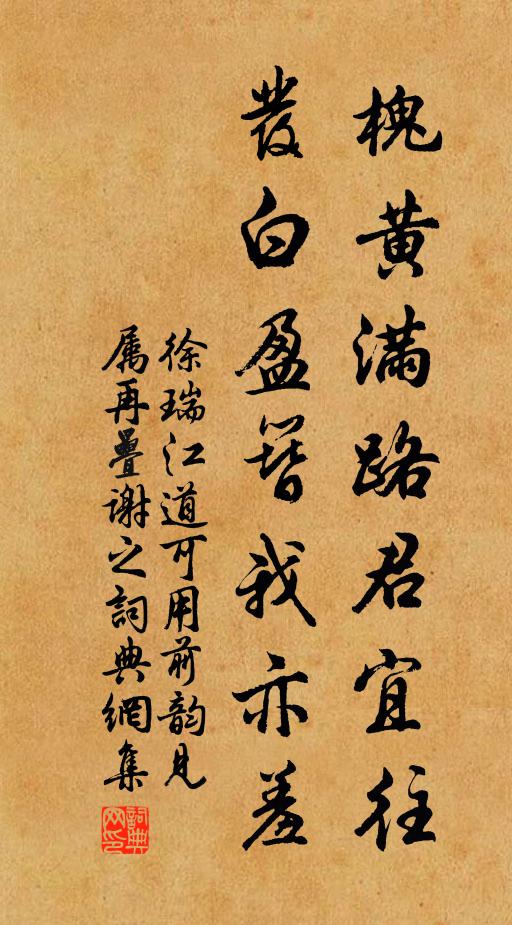 槐黄满路君宜往
發白盈簪我亦羞
徐瑞江道可用前韵见
属再疊谢之詞典網集
詞典网印